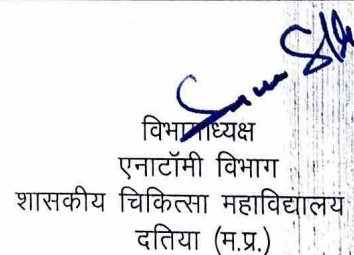 विभागाध्यक्ष
एनाटॉमी विभाग
शासकीय चिकित्सा महाविद्यालय
दतिया (म.प्र.)